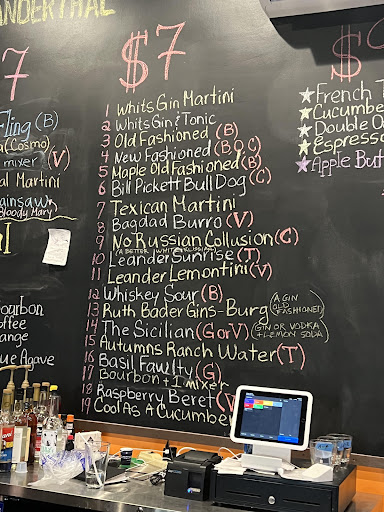 ANDERTHAL
7
Fling (B)
(Cosmo)
mixer (V)
al Martini
Bloody Mary
ourbon
offee
ange
ue Agave
$7
1 Whits Gin Martini
2 Whits Gin & Tonic
3 Old Fashioned (B)
4 New Fashioned (B or C)
5 Maple Old Fashioned (B)
6 Bill Pickett Bull Dog (C)
7 Texican Martini
8 Bagdad Burro (V)
9 No Russian Collusion (C)
(A BETTER WHITE RUSSIAN)
10 Leander Sunrise (T)
11 Leander Lemontini (V)
12 Whiskey Sour (B)
13 Ruth Bader Gins-Burg (A GIN OLD FASHIONED)
14 The Sicilian (G or V) (GIN OR VODKA + LEMON SODA)
15 Autumns Ranch Water (T)
16 Basil Faulty (G)
17 Bourbon + 1 mixer
18 Raspberry Beret (V
19 Cool As A Cucumbe
$
★ French T
★ Cucumbe
★ Double O
★ Espresso
★ Apple But